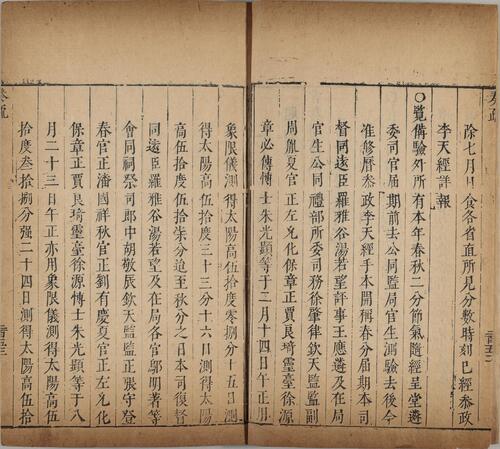 除七月日食各省直所見分數時刻已經叅政
李天經詳報
○覧僃驗外所有本年春秋二分節氣隨經呈堂遴
委司官届期前去公同監局官生測驗去後今
准修曆叅政李天經手本開稱春分届期本司
督同遠臣羅雅谷湯若望評事王應遴及在局
官生公同禮部所委司務徐肇律欽天監監副
周胤夏官正左允化保章正賈良琦靈臺徐源
章必傳愽士朱光顯等于二月十四日午正用
象限儀測得太陽高伍拾度零捌分十五日測
得太陽高伍拾度三十三分十六日測得太陽
高伍拾度伍拾柒分迨至秋分之日本司復督
同遠臣羅雅谷湯若望及在局各官鄔明著等
會同祠祭司郎中胡敬辰欽天監監正張守登
春官正潘國祥秋官正劉有慶夏官正左允化
保章正賈良琦靈臺徐源愽士朱光顯等于八
月二十三日午正亦用象限儀測得太陽高伍
拾度叁拾捌分强二十四日測得太陽高伍拾